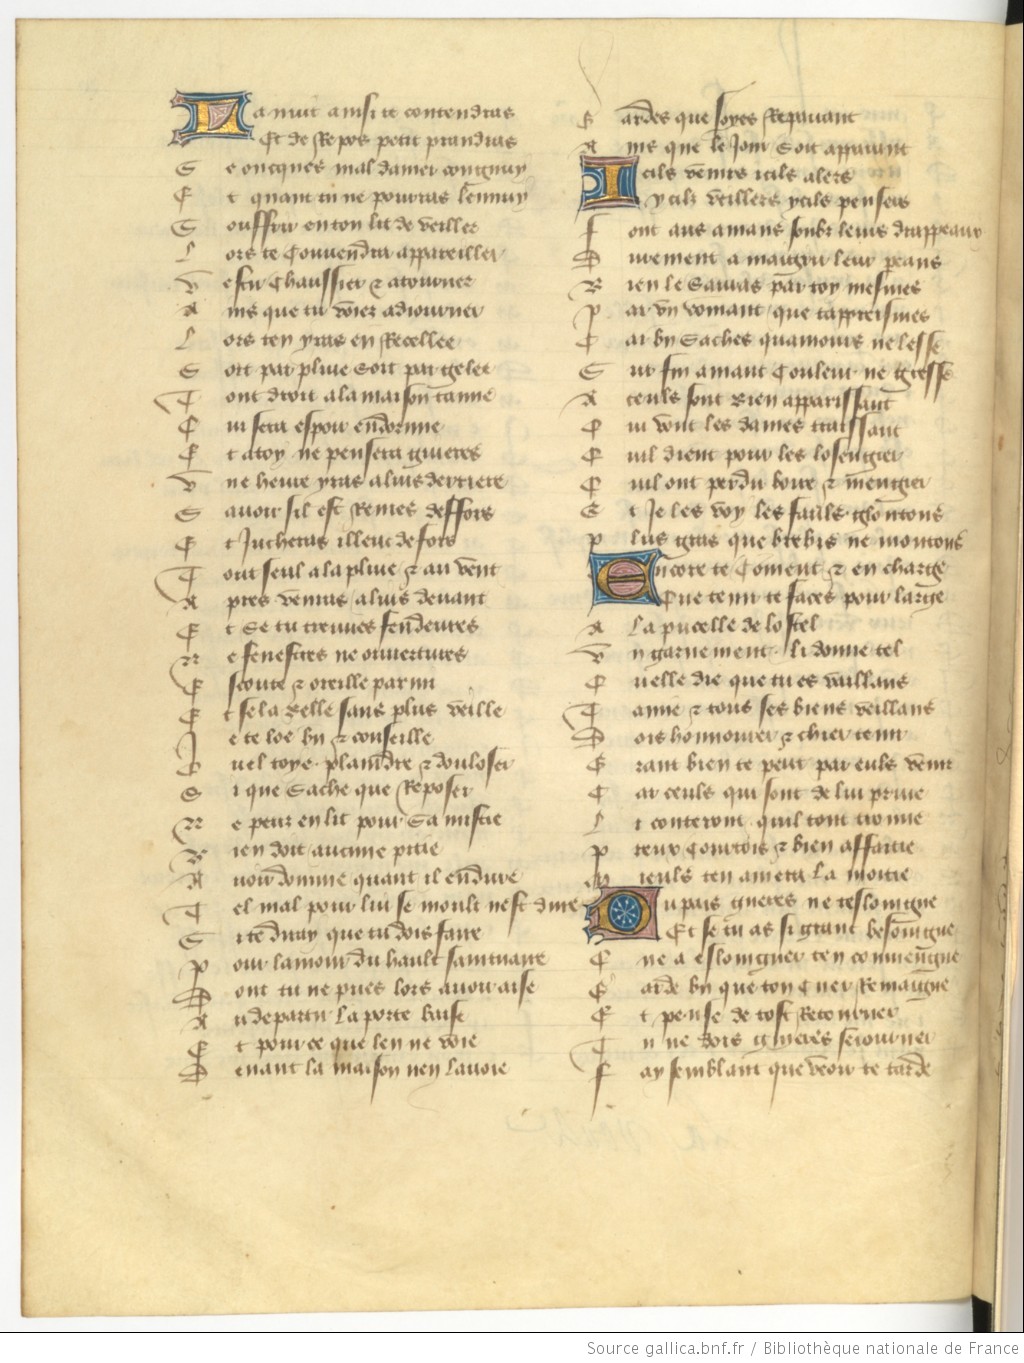 La nuit ainsi te contendras
Et de Repos petit prandras
Se oncques mal damer congnuy
Et quant tu ne pourras lennuy
Souffrir en ton lit de veiller
Lors te Convendra appareiller
Vestir Chaussier & atourner
Ains que tu voiez adiourner
Lors ten yras en Recellee
Soit par pluie Soit par gelee
Tout droit a la maison tamie
Qui sera espoir endormie
Et a toy ne pensera guieres
Vne heure yras a luis derriere
Sauoir sil est Remes deffors
Et Jucheras illeuc defors
Tout seul a la pluie & au vent
Apres venras a luis deuant
Et Se tu treuues fendeures
Ne fenestres ne ouuertures
Escoute & oreille parmi
Et se la Belle sans plus veille
Je te loe bn & conseille
Quel toye plaindre & douloser
Si que Sache que Reposer
Ne peuz en lit pour Sa mistie
Bien doit aucune pitie
Auoir domme quant il endure
Tel mal pour lui se moult nest dure
Si te diray que tu dois faire
Pour lamour du hault saintuaire
Dont tu ne pues lors auoir aise
Au departir la porte baise
Et pour ce que len ne voie
Deuant la maison nen la voie
Gardes que soyes Repairant
Ains que le Jour Soit apparant
Icils venirs icils alers
Ycilz veillers ycils pensers
Font aus amans soubz leurs drappeaux
Durement amaigrir leur peaus
Bien le Sauras par toy mesmes
Par vn rommant que tapreismes
Car bn Saches quamours ne lesse
Sur fin amant Couleur ne gresse
A ceuls sont Bien apparissant
Qui vont les dames traissant
Quil dient pour les losengier
Quil ont perdu boire & mengier
Et Je les voy les fauls gloutons
Plus gras que brebis ne moutons
Encore te Coment & en charge
Que tenir te faces pour large
A la pucelle de lostel
Vn garnement li donne tel
Quelle die que tu es vaillans
Tamie & tous ses biens veillans
Dois honnourer & chier tenir
Grant bien te peut par euls venir
Car ceuls qui sont de lui priue
Li conteront quil tont trouue
Preux Courtois & bien affaitie
Mieuls ten amera la moitie
Du pais gueres ne teslongne
Et se tu as si grant besoingne
Que a eslongner ten conuiengne
Garde bn que ton Cuer Remaigne
Et pense de tost Retourner
Tu ne dois gueres seiourner
Fay semblant que veoir te tarde